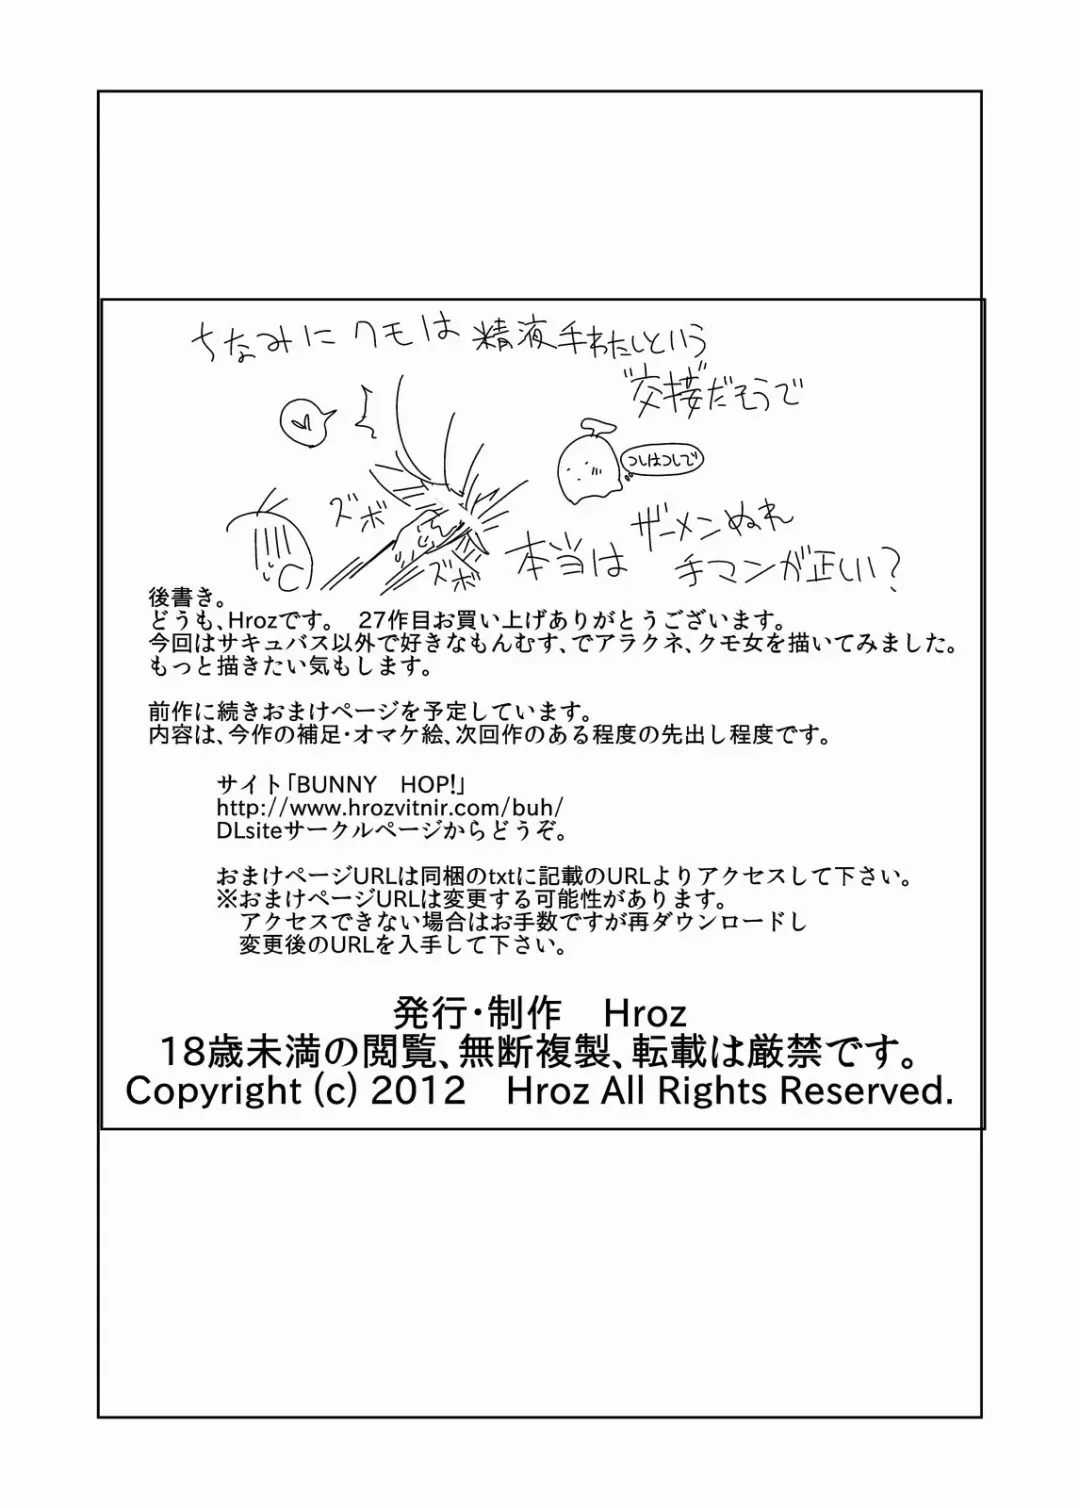 ちなみに クモは 精液手わたしという
"交接"だそうで
つしはつしで
ズボ
ズボ
本当は ザーメンぬれ
手マンが正しい?
後書き。
どうも、Hrozです。　27作目お買い上げありがとうございます。
今回はサキュバス以外で好きなもんむす、でアラクネ、クモ女を描いてみました。
もっと描きたい気もします。
前作に続きおまけページを予定しています。
内容は、今作の補足・オマケ絵、次回作のある程度の先出し程度です。
サイト「BUNNY　HOP!」
http://www.hrozvitnir.com/buh/
DLsiteサークルページからどうぞ。
おまけページURLは同梱のtxtに記載のURLよりアクセスして下さい。
※おまけページURLは変更する可能性があります。
アクセスできない場合はお手数ですが再ダウンロードし
変更後のURLを入手して下さい。
発行・制作　Hroz
18歳未満の閲覧、無断複製、転載は厳禁です。
Copyright (c) 2012　Hroz All Rights Reserved.